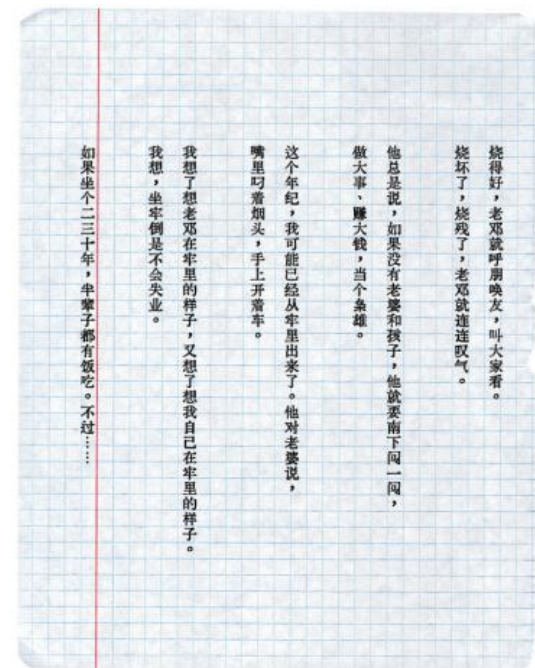 烧得好，老邓就呼朋唤友，叫大家看。
烧坏了，烧残了，老邓就连连叹气。
他总是说，如果没有老婆和孩子，他就要南下闯一闯，
做大事、赚大钱，当个枭雄。
这个年纪，我可能已经从牢里出来了。他对老婆说，
嘴里叼着烟头，手上开着车。
我想了想老邓在牢里的样子，又想了想我自己在牢里的样子。
我想，坐牢倒是不会失业。
如果坐个二三十年，半辈子都有饭吃。不过……